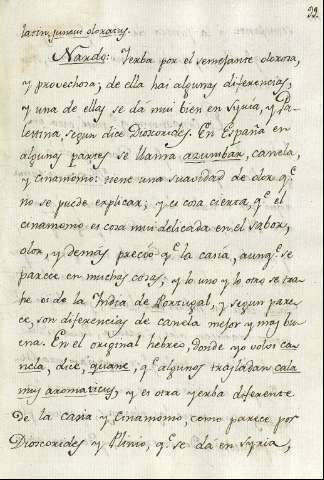 22
latin, juncus odoratus.
Nardo: Yerba por el semejante olorosa,
y provechosa, de ella hai algunas diferencias,
y una de ellas se dà mui bien en Syria, y Pa-
lestina, segun dice Dioscorides. En España en
algunas partes se llama azumbar, canela,
y cinamomo: tiene una suavidad de olor q.e
no se puede explicar; y es cosa cierta, q.e el
cinamomo es cosa mui delicada en el sabor,
olor, y demás preciò q.e la casia, aunq.e se
parece en muchas cosas; y lo uno y lo otro se tra-
he oi de la India de Portugal, y segun pare-
ce, son diferencias de canela mejor y mas bue-
na. En el original hebreo, donde yo volvi ca-
nela, dice, quane, q.e algunos trasladan cala
mus aromaticus, y es otra yerba diferente
de la casia y cinamomo, como parece por
Dioscorides y Plinio, q.e se dà en Syria,